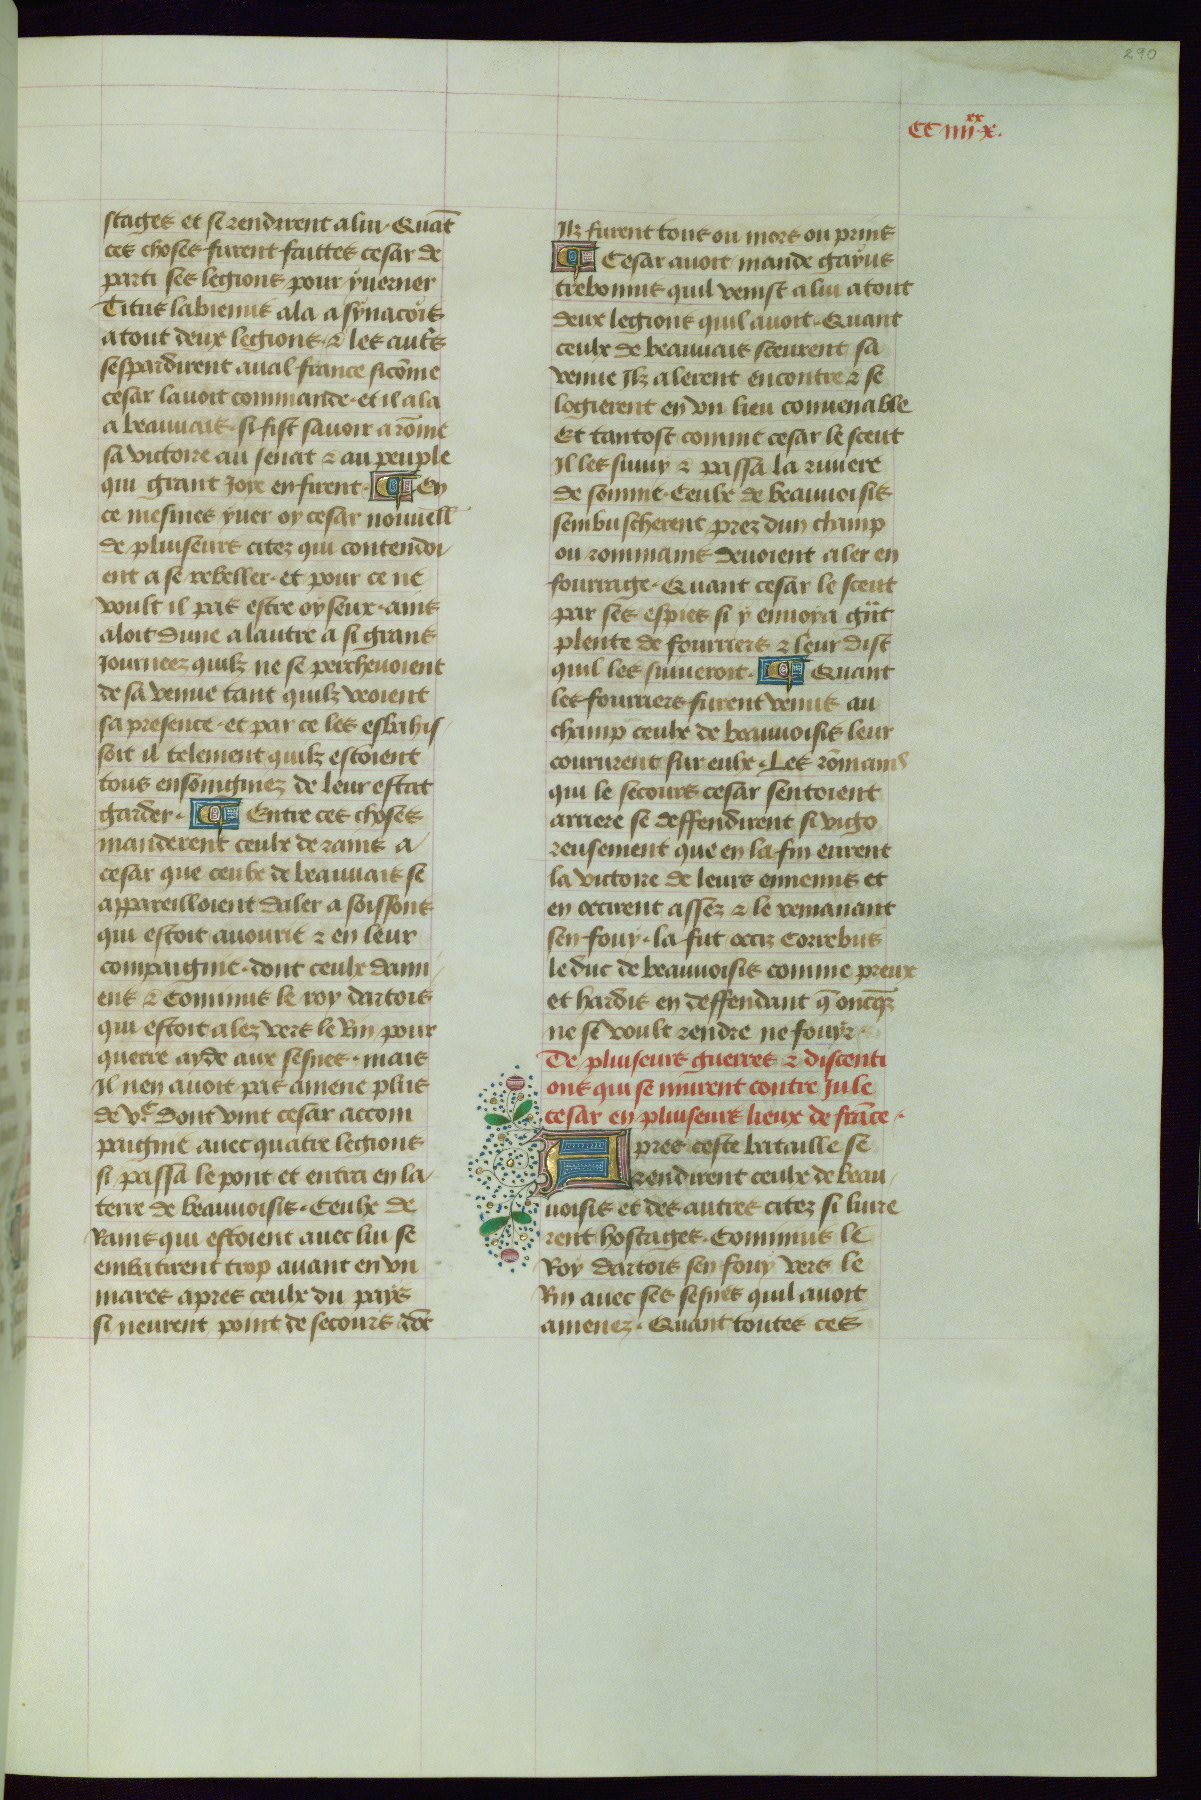 290
CC iiii xx x.
stages et se rendirent a lui. Quāt
ces choses furent faittes cesar de
parti ses legions pour yuerner
Titus labienus ala a synacōis
atout deux legions. & les autꝰs
sespardirent aual france sicōme
cesar lauoit commande. et il ala
a beauuais. si fist sauoir a rōme
sa victoire au senat & au peuple
qui grant Joye en firent. En
ce mesmes yuer oy cesar nouuell
de pluiseurs citez qui contendoi
ent a se rebeller. et pour ce ne
voult il pas estre oyseux. ains
aloit dune a lautre a si grans
Journeez quilz ne se percheuoient
de sa venue tant quilz veoient
sa presence. et par ce les esbahis
soit il telement quilz estoient
tous ensonnignez de leur estat
garder. Entre ces choses
manderent ceulx de rains a
cesar que ceulx de beauuais se
appareilloient daler a soissons
qui estoit auourie & en leur
compaignie. dont ceulx dami
ens & Commius le roy dartois
qui estoit alez vers le Rin pour
querre ayde aux sesnes. mais
Il nen auoit pas amene plus
de vᶜ. Dont vint cesar accom
paignie auec quatre legions
si passa le pont et entra en la
terre de beauuoisis. Ceulx de
Rains qui estoient auec lui se
embatirent trop auant en vn
mares apres ceulx du pays
si neurent point de secours dōt
Ilz furent tous ou mors ou prins
Cesar auoit mande gayus
trebonnius quil venist a lui atout
deux legions quil auoit. Quant
ceulx de beauuais sceurent sa
venue Ilz alerent encontre & se
logierent en vn lieu conuenable
Et tantost comme cesar le sceut
Il les suiuy & passa la riuiere
de somme. Ceulx de beauuoisis
sembuscherent prez dun champ
ou rommains deuoient aler en
fourrage. Quant cesar le sceut
par ses espies si y enuoya gūt
plente de fourriers & leur dist
quil les suiueroit. Quant
les fourriers furent venus au
champ ceulx de beauuoisis leur
coururent sur eulx. Les rōmains
qui le secours cesar sentoient
arriere se deffendirent si vigo
reusement que en la fin eurent
la victoire de leurs ennemis et
en occirent assez & le remanant
sen fouy. la fut occiz Correbus
le duc de beauuoisis comme preux
et hardis en deffendant q̄ oncq̄z
ne se voult rendre ne fouyr.
De pluiseurs guerres & discenti
ons qui se murent contre Jule
cesar en pluiseurs lieux de frāce.
Apres ceste bataille se
rendirent ceulx de beau
uoisis et des autres citez si liure
rent hostages. Commius le
Roy dartois sen fouy vers le
Rin auec ses sesnes quil auoit
amenez. Quant toutes ces